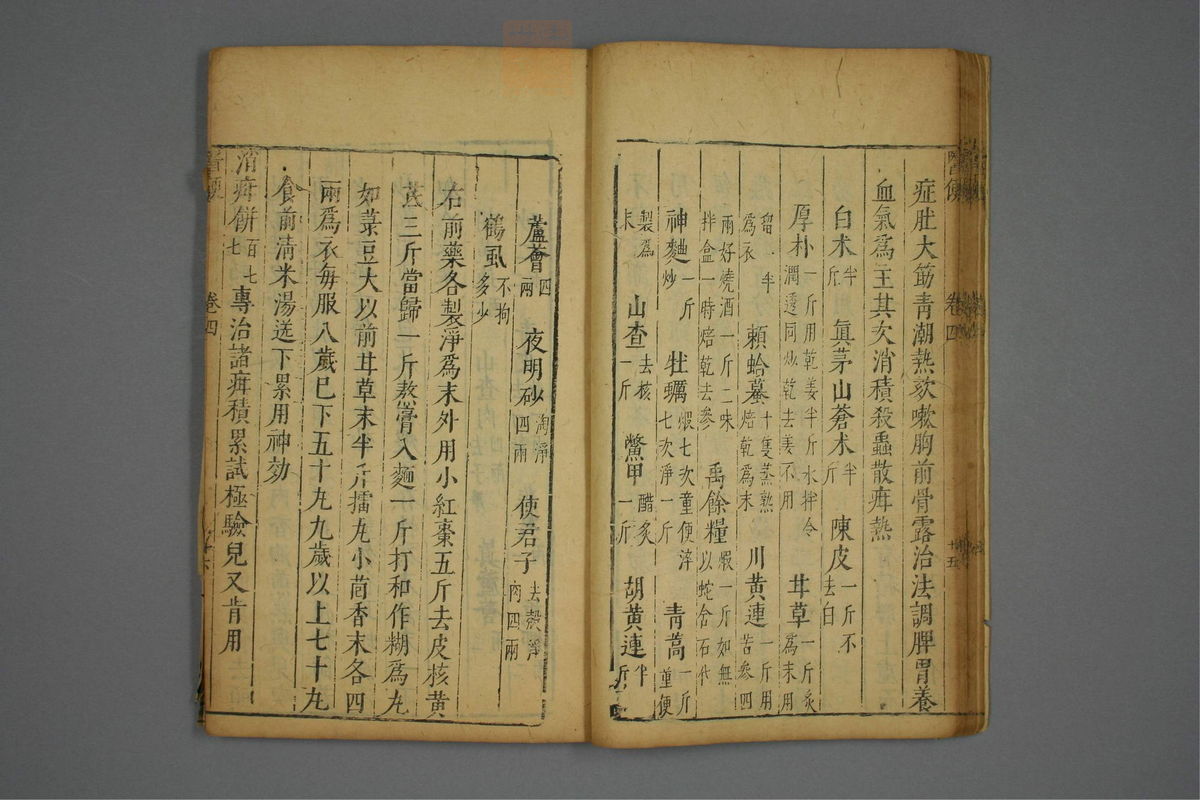 症肚大筋青潮熱欬嗽胸前骨露治法調脾胃養
血氣爲主其次消積殺蟲散疳熱
白术半斤 眞茅山蒼术半斤 陳皮一斤不去白
厚朴一斤用乾姜半斤水拌令潤透同炒乾去姜不用 甘草一斤炙爲末用
一半爲衣 賴蛤蟇十隻蒸熟焙乾爲末 川黃連一斤用苦參四
兩好燒酒一斤二味拌盒一時焙乾去參 禹餘糧煆一斤如無以蛇含石代
神麯一斤炒 牡蠣煆七次童便淬七次淨一斤 青蒿一斤童便
製爲末 山查去核一斤 鱉甲醋炙一斤 胡黃連半斤
醫便 卷四 廿五
蘆薈四兩 夜明砂淘淨四兩 使君子去殼淨肉四兩
鶴虱不拘多少
右前藥各製淨爲末外用小紅棗五斤去皮核黃
芪三斤當歸一斤熬膏入麵一斤打和作糊爲丸
如菉豆大以前甘草末半斤擂丸小茴香末各四
兩爲衣每服八歲巳下五十九九歲以上七十丸
食前清米湯送下累用神効
消疳餅百七七 專治諸疳積累試極驗兒又肯用
醫便 卷四